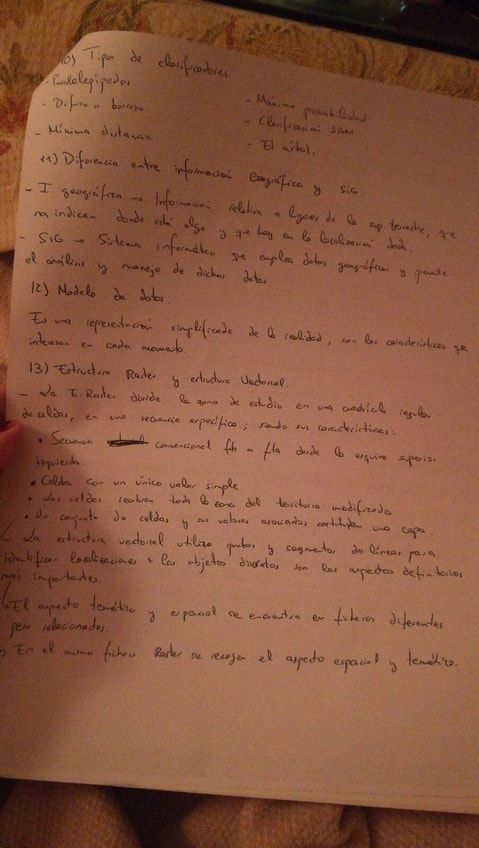 10) Tipos de clasificadores.
- Paralelepípedos
- Máxima probabilidad
- Difusa o borrosa
- Clasificación
- Mínima distancia
- El árbol.
11) Diferencia entre información Geográfica y SIG.
- I. geográfica → Información relativa a lugares de la sup. terrestre, que
nos indican donde está algo y que hay en la localización dada
- SIG → Sistema informático que emplea datos geográficos y permite
el análisis y manejo de dichos datos
12) Modelo de datos.
Es una representación simplificada de la realidad, con las características que
interesan en cada momento.
13) Estructura Raster y estructura Vectorial.
- La E. Raster divide la zona de estudio en una cuadrícula regular
de celdas, en una secuencia específica; siendo sus características:
• Secuencia convencional fila a fila desde la esquina superior
izquierda.
• Celda con un único valor simple
• Las celdas recubren toda la zona del territorio modificada
• Un conjunto de celdas y sus valores asociados constituyen una capa.
- La estructura vectorial utiliza puntos y segmentos de líneas para
identificar localizaciones. los objetos discretos son los aspectos definitorios
más importantes.
El aspecto temático y espacial se encuentra en ficheros diferentes
pero relacionados.
En el mismo fichero Raster se recogen el aspecto espacial y temático.